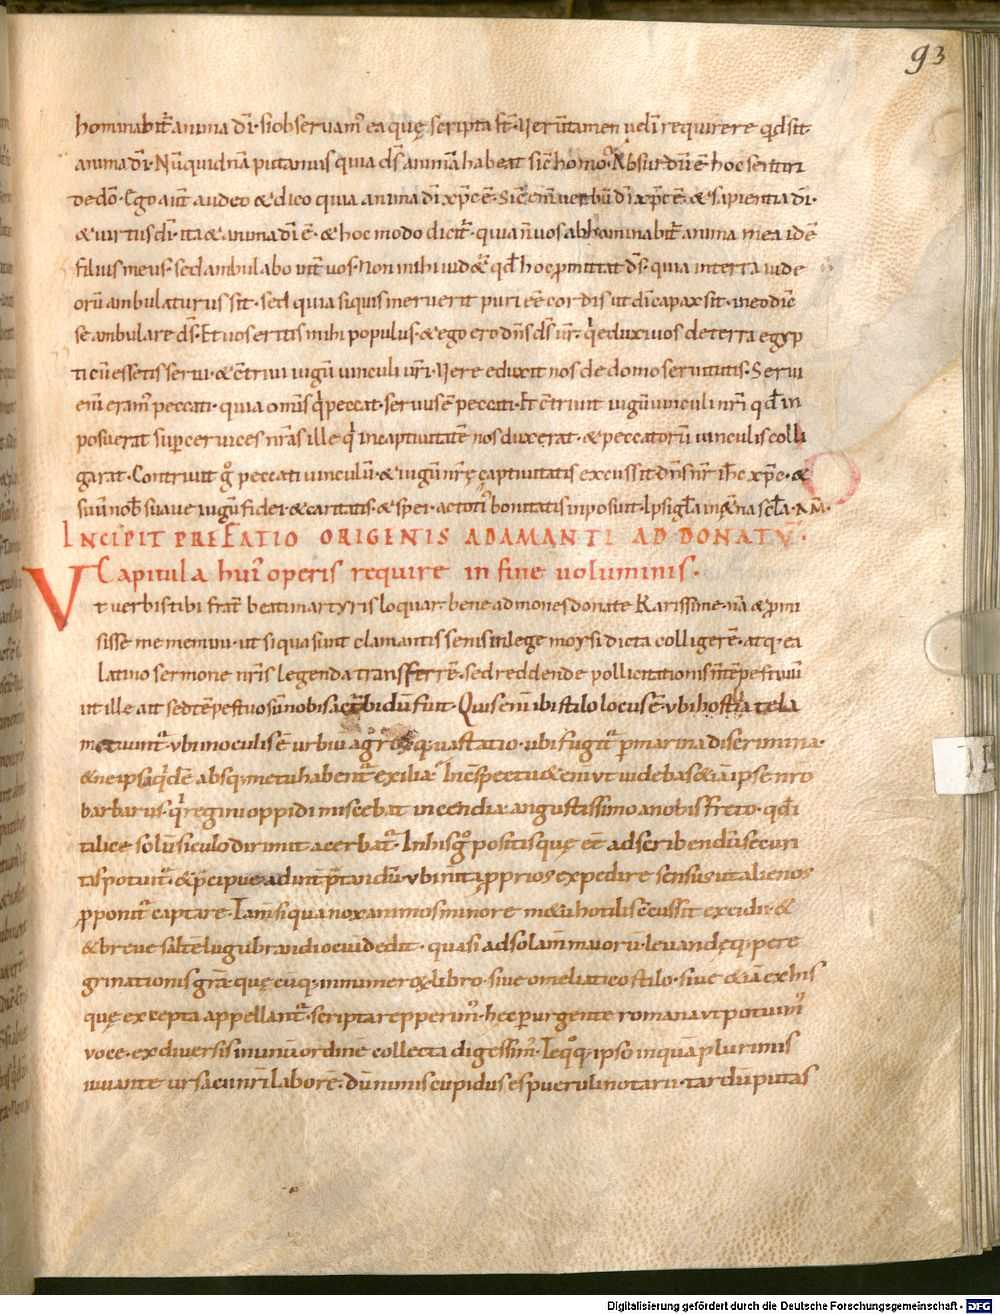 93
hominabit̄ anima dī· si obseruam̄ ea quę scripta st̄· Verūtamen uelī requirere qd̄ sit
anima dī· Nūquidnā putamus quia ds̄ animā habeat sic̄ homo· Absurdū ē hoc sentiri
de dō· Ego aūt audeo & dico quia anima dī xpc̄ ē· Sic̄ enī uerbū dī xpc̄ ē· & sapientia dī·
& uirtus dī· ita & anima dī ē· & hoc modo dicit̄· quia n̄ uos abhominabit̄ anima mea idē
filius meus· sed ambulabo int̄ uos· Non mihi uidet̄ qd̄ hoc ꝓmittat ds̄· quia in terra iude
orū ambulaturus sit· sed quia siquis meruerit puri eē cordis ut dī capax sit· in eo dic̄
se ambulare ds̄· Et uos eritis mihi populus· & ego ero dn̄s ds̄ ur̄· qī eduxi uos de terra egyp
ti cū essetis serui· & c̄triui iugū uinculi urī· Vere eduxit nos de domo seruitutis· Serui
enī eram̄ peccati· quia omīs qī peccat· seruus ē peccati· Et c̄triuit iugū uinculi nrī qd̄ in
posuerat sup ceruices nrās ille qī in captiuitatē nos duxerat· & peccatorū uinculis colli
garat· Contriuit gͦ peccati uinculū· & iugū nrę̄ captiuitatis excussit dn̄s nr̄ ihc̄ xpc̄· &
suū nob̄ suaue iugū fidei & caritatis· & spei· ac toti bonitatis inposuit· Ipsi gla in &na scla· AM̄·
INCIPIT PREFATIO ORIGENIS ADAMANTI AD DONATŪ·
Capitula hui operis require in fine uoluminis·
Vt uerbis tibi frat̄ beati martyris loquar· bene admones donate Karissime· nā & ꝓmi
sisse me memini· ut siqua sunt clamantis senis in lege moysi dicta colligerē· atq; ea
latino sermone nrīs legenda transferrē· sed reddende pollicitationis
ut ille ait sed tēpestuosū nobis ac turbidū fuit· Quis enī ibi stilo locus ē· vbi hostīa tela
metuunt̄· vbi in oculis ē urbiū agroꝝq; uastatio· ubi fugit̄ ꝑ marina discrimina·
& ne ipsa qidē absq; metu habent̄ exilia· In c̄spectu &enī ut uidebas &iā ipse nr̄o
barbarus· qī regini oppidi miscebat incendia· angustissimo a nobis freto· qd̄ i
talice solū siculo dirimit acerbat̄· In his gͦ positis quę eē ad scribendū securi
tas potuit̄· & p̄cipue ad int̄ p̄tandū· vbi n̄ ita ꝓprios expedire sensus ut alienos
ꝓponit̄ captare· Iam siqua nox animos minore metu hostilis c̄cussit excidii· &
& breue saltē lugubrandi ocium dedit· quasi ad solam maiorū· leuandęq; pere
grinationis grā· quę cūq; in numeroꝝ libro· siue omeliatico stilo· siue &iā ex his
quę excepta appellant̄· scripta repperim̄· hęc ꝑurgente romana ut potuim̄
voce· ex diuersis in unū ordinē collecta digessim̄· Teq͛q; ipso inquā plurimis
iuuante ursaci nrī laborē· dū nimis cupidus es puer ūli notarii· tardū putas